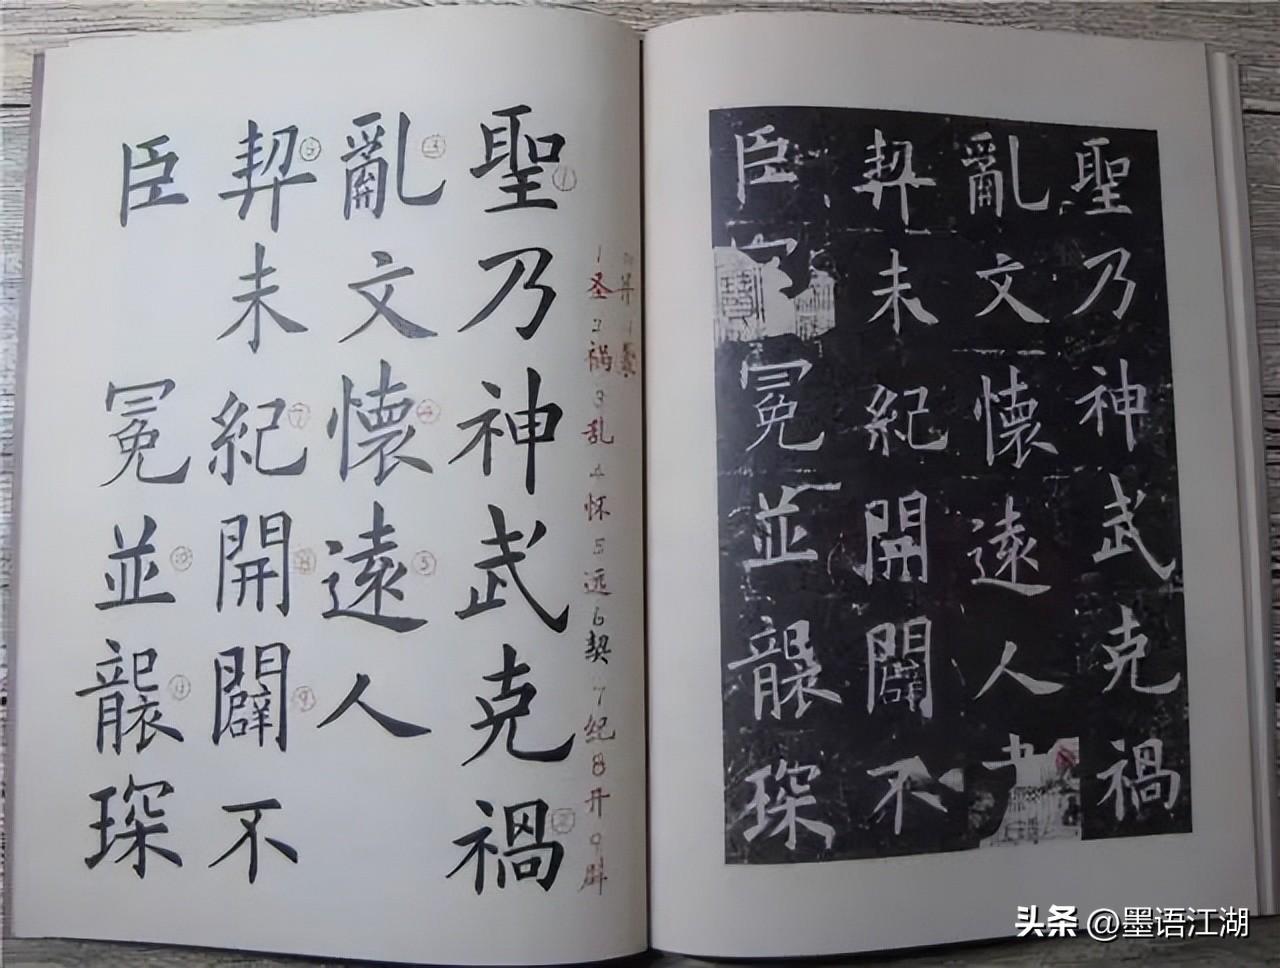 聖乃神武克禍
亂文懷遠人
契未紀開闢不
臣冕並襲琛
1圣2祸3乱4怀5远6契7纪8开9辟
聖乃神武克禍
亂文懷遠人
契未紀開闢不
臣冕並襲琛
头条 @墨语江湖